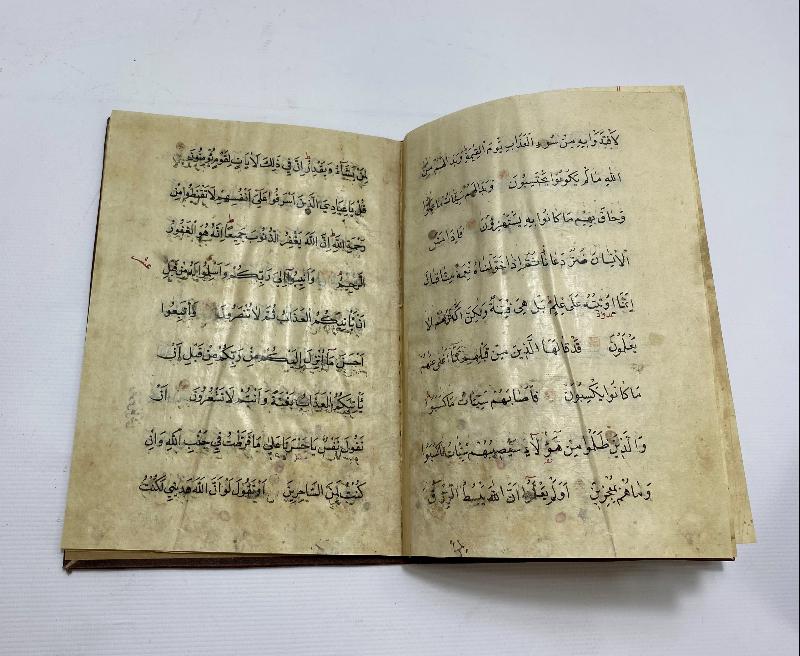 لَافْتَدَوْا بِهِ مِنْ سُوءِ الْعَذَابِ يَوْمَ الْقِيٰمَةِ وَبَدَا لَهُمْ مِنَ
اللهِ مَا لَمْ يَكُونُوا يَحْتَسِبُونَ وَبَدَا لَهُمْ سَيِّئَاتُ مَا كَسَبُوا
وَحَاقَ بِهِمْ مَا كَانُوا بِهِ يَسْتَهْزِؤُنَ فَاِذَا مَسَّ
الْاِنْسَانَ ضُرٌّ دَعَانَا ثُمَّ اِذَا خَوَّلْنَاهُ نِعْمَةً مِنَّا قَالَ
اِنَّمَا اُوتِيتُهُ عَلَى عِلْمٍ بَلْ هِيَ فِتْنَةٌ وَلٰكِنَّ اَكْثَرَهُمْ لَا
يَعْلَمُونَ قَدْ قَالَهَا الَّذِينَ مِنْ قَبْلِهِمْ فَمَا اَغْنَى عَنْهُمْ
مَا كَانُوا يَكْسِبُونَ فَاَصَابَهُمْ سَيِّئَاتُ مَا كَسَبُوا
وَالَّذِينَ ظَلَمُوا مِنْ هٰؤُلَاءِ سَيُصِيبُهُمْ سَيِّئَاتُ مَا كَسَبُوا
وَمَا هُمْ بِمُعْجِزِينَ اَوَلَمْ يَعْلَمُوا اَنَّ اللهَ يَبْسُطُ الرِّزْقَ
لِمَنْ يَشَاءُ وَيَقْدِرُ اِنَّ فِي ذٰلِكَ لَاٰيَاتٍ لِقَوْمٍ يُؤْمِنُونَ
قُلْ يَا عِبَادِيَ الَّذِينَ اَسْرَفُوا عَلَى اَنْفُسِهِمْ لَا تَقْنَطُوا مِنْ
رَحْمَةِ اللهِ اِنَّ اللهَ يَغْفِرُ الذُّنُوبَ جَمِيعًا اِنَّهُ هُوَ الْغَفُورُ
الرَّحِيمُ وَاَنِيبُوا اِلَى رَبِّكُمْ وَاَسْلِمُوا لَهُ مِنْ قَبْلِ
اَنْ يَأْتِيَكُمُ الْعَذَابُ ثُمَّ لَا تُنْصَرُونَ وَاتَّبِعُوا
اَحْسَنَ مَا اُنْزِلَ اِلَيْكُمْ مِنْ رَبِّكُمْ مِنْ قَبْلِ اَنْ
يَأْتِيَكُمُ الْعَذَابُ بَغْتَةً وَاَنْتُمْ لَا تَشْعُرُونَ اَنْ
تَقُولَ نَفْسٌ يَا حَسْرَتَا عَلَى مَا فَرَّطْتُ فِي جَنْبِ اللهِ وَاِنْ
كُنْتُ لَمِنَ السَّاخِرِينَ اَوْ تَقُولَ لَوْ اَنَّ اللهَ هَدٰينِي لَكُنْتُ